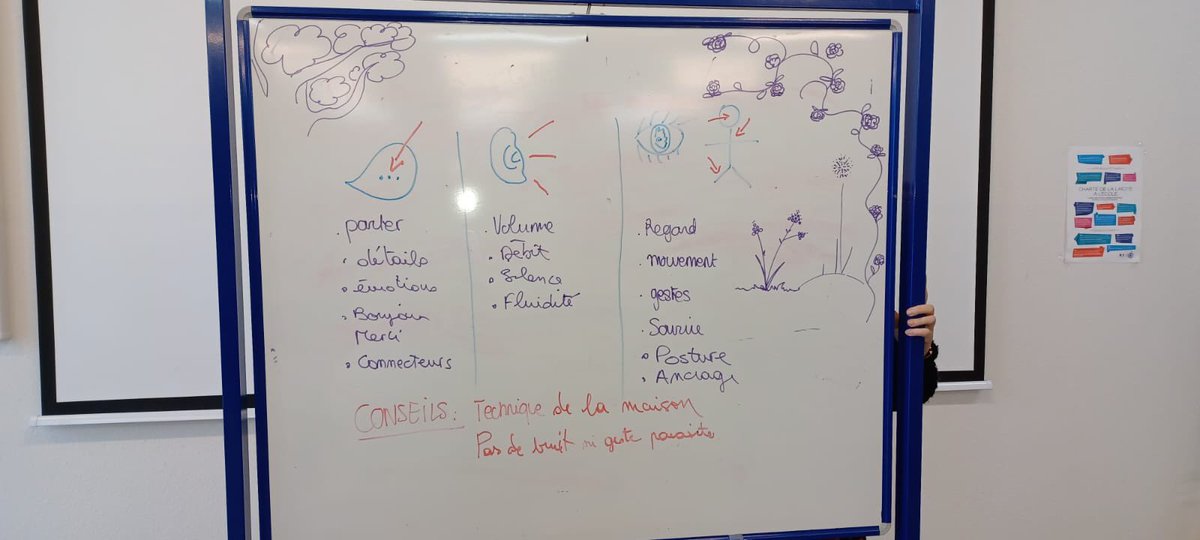 . parler
. détails
. émotions
. Bonjour
Merci
. Connecteurs
. Volume
. Débit
. Silence
. Fluidité
. Regard
. mouvement
. gestes
. Sourire
. Posture
. Ancrage
CONSEILS : Technique de la maison
Pas de bruit ni geste parasite
CHARTE DE LA LAÏCITÉ
À L'ÉCOLE